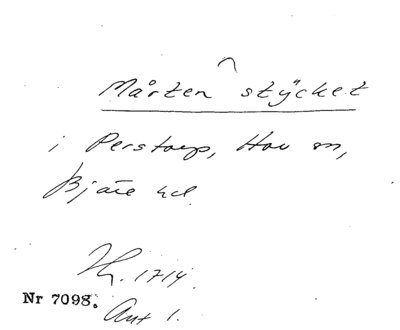 Mårten ^ stycket
i Perstorp, Hov sn,
Bjäre hd.
Hg. 1714.
Nr 7098.
Ant 1.